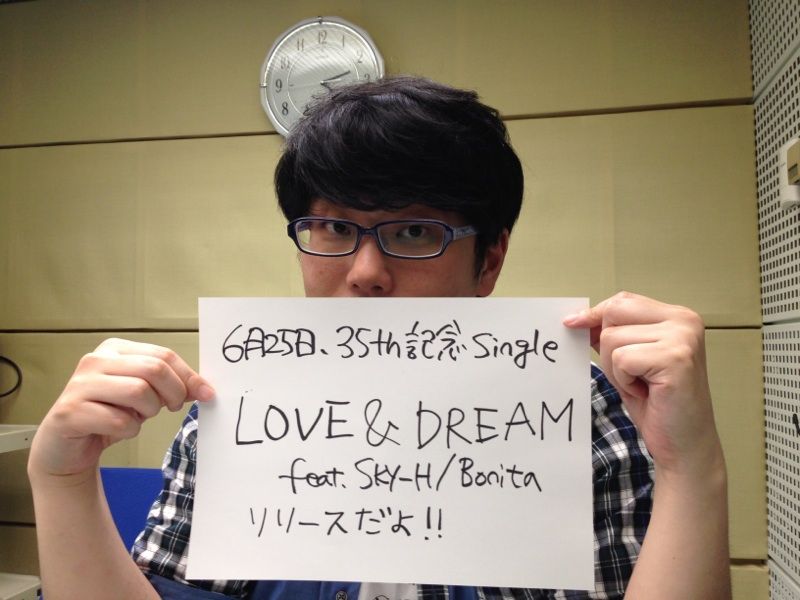 6月25日、35th記念Single
LOVE & DREAM
feat. SKY-H/Bonita
リリースだよ!!
12
11
10
9
8